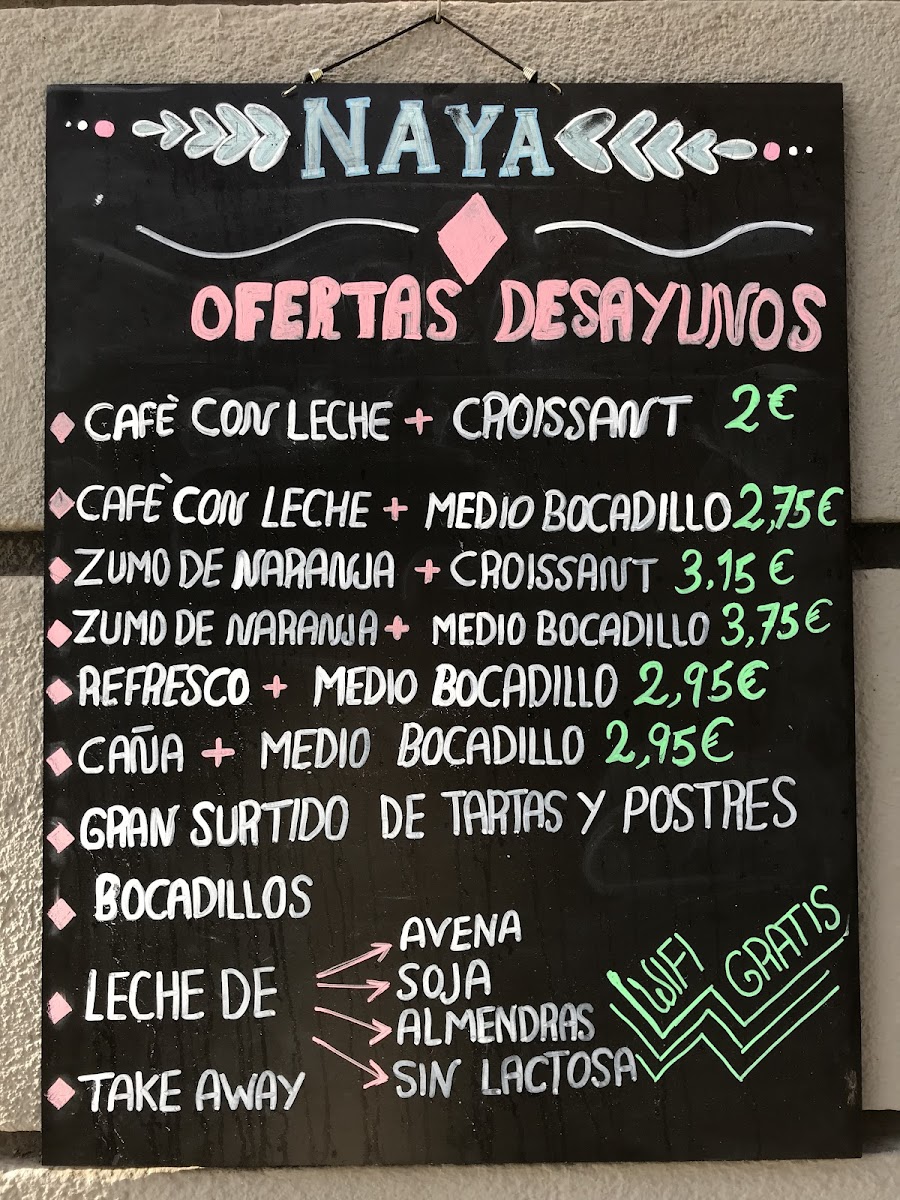 NAYA
OFERTAS DESAYUNOS
CAFÈ CON LECHE + CROISSANT 2€
CAFÈ CON LECHE + MEDIO BOCADILLO 2,75€
ZUMO DE NARANJA + CROISSANT 3.15€
ZUMO DE NARANJA + MEDIO BOCADILLO 3,75€
REFRESCO + MEDIO BOCADILLO 2,95€
CAÑA + MEDIO BOCADILLO 2,95€
GRAN SURTIDO DE TARTAS Y POSTRES
BOCADILLOS
LECHE DE
AVENA
SOJA
ALMENDRAS
SIN LACTOSA
WIFI GRATIS
TAKE AWAY